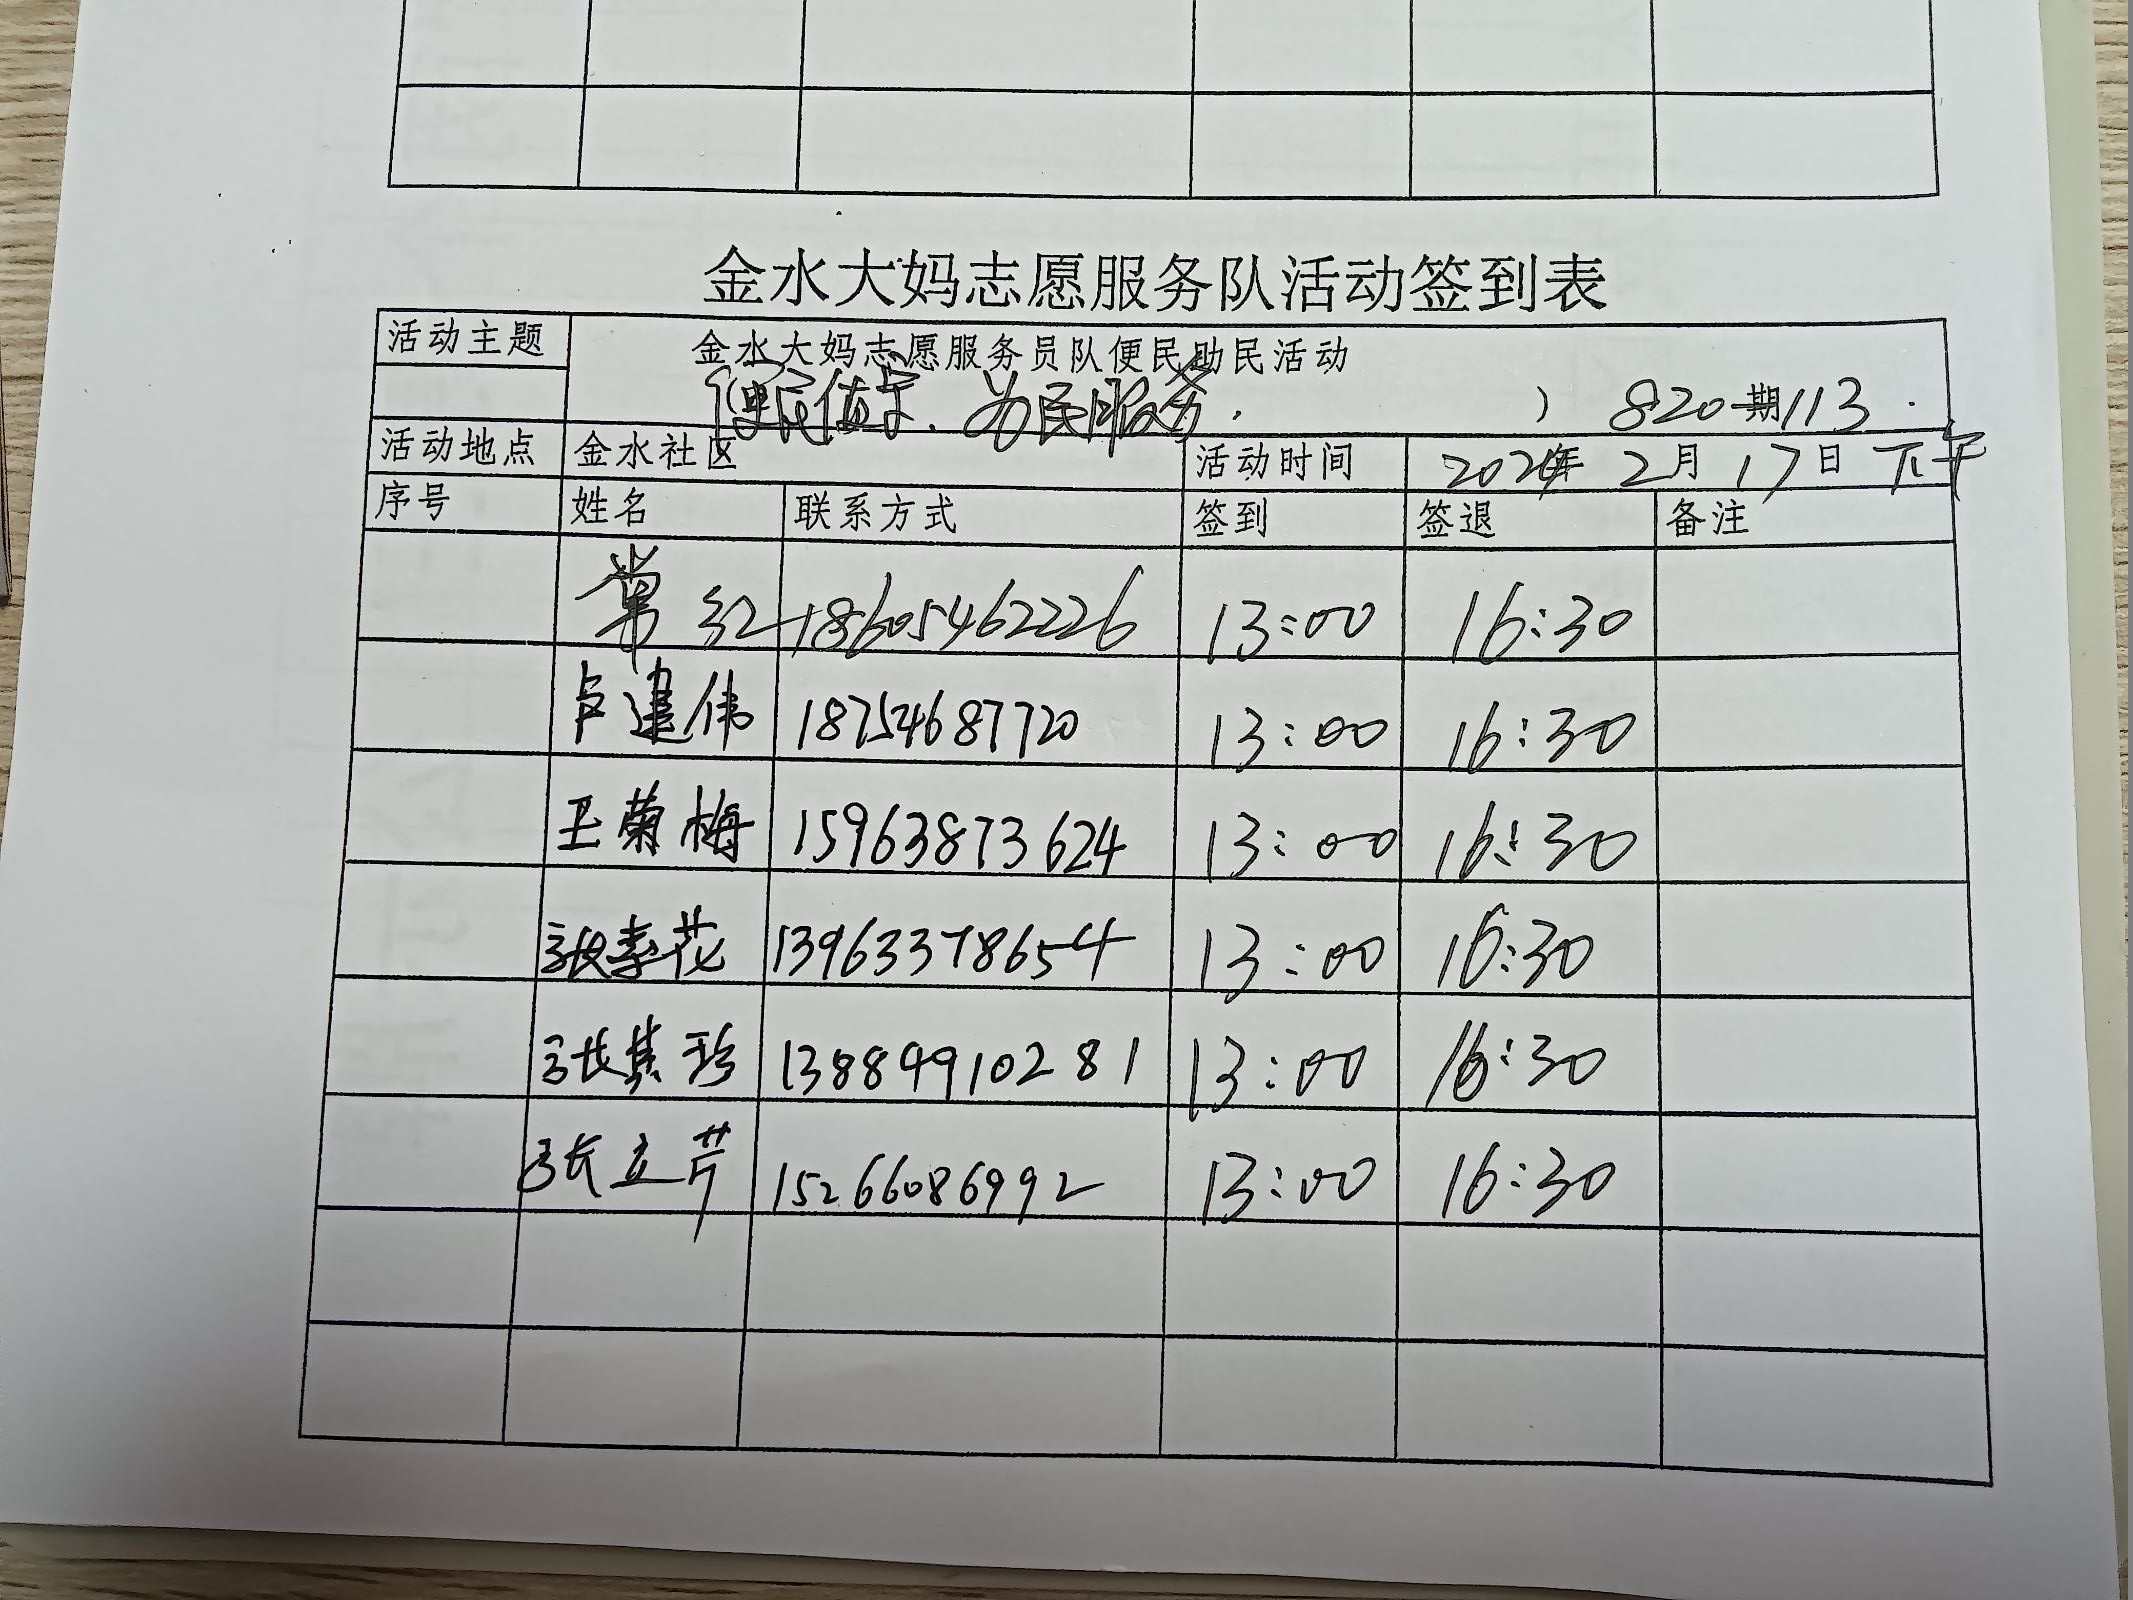 金水大妈志愿服务队活动签到表
活动主题 金水大妈志愿服务员队便民助民活动
便民值点、为民服务. ） 820期113.
活动地点 金水社区 活动时间 2024年 2月 17日 下午
序号 姓名 联系方式 签到 签退 备注
常红 18605462226 13:00 16:30
卢建伟 18754687720 13:00 16:30
王菊梅 15963873624 13:00 16:30
张季花 13963378654 13:00 16:30
张其珍 13884910281 13:00 16:30
张立芹 15266086992 13:00 16:30